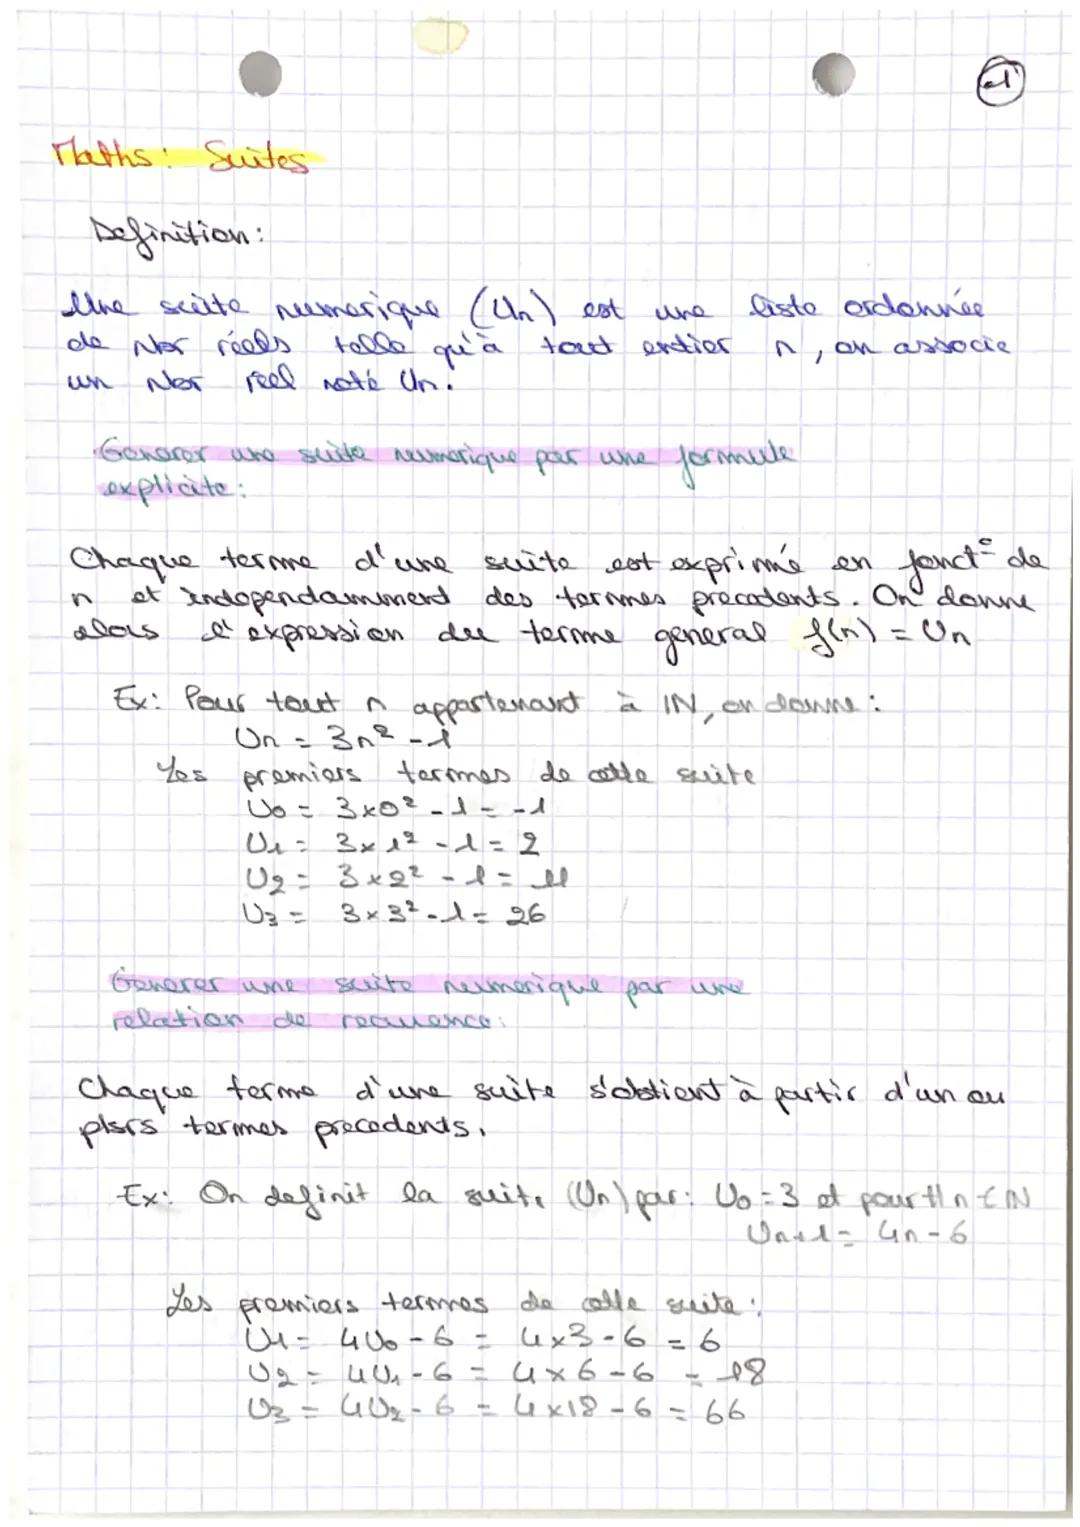 1
Maths : Suites
Definition :
Une suite numerique (Un) est une liste ordonnée
de Nbr réels telle qu'à tout entier n, on associe
un Nbr réel noté Un.
Generer une suite numerique par une formule
explicite :
Chaque terme d'une suite est exprimé en fonct° de
n et independamment des termes precedents. On donne
alors l'expression du terme general f(n) = Un
Ex: Pour tout n appartenant à IN, on donne :
Un = 3n² - 1
Les premiers termes de cette suite
U0 = 3x0² - 1 = -1
U1 = 3x1² - 1 = 2
U2 = 3x2² - 1 = 11
U3 = 3x3² - 1 = 26
Generer une suite numerique par une
relation de recurence:
Chaque terme d'une suite s'obtient à partir d'un ou
plsrs termes precedents.
Ex: On definit la suite (Un) par: U0 = 3 et pour tt n ∈ IN
Un+1 = 4n - 6
Les premiers termes de cette suite :
U1 = 4U0 - 6 = 4x3 - 6 = 6
U2 = 4U1 - 6 = 4x6 - 6 = 18
U3 = 4U2 - 6 = 4x18 - 6 = 66